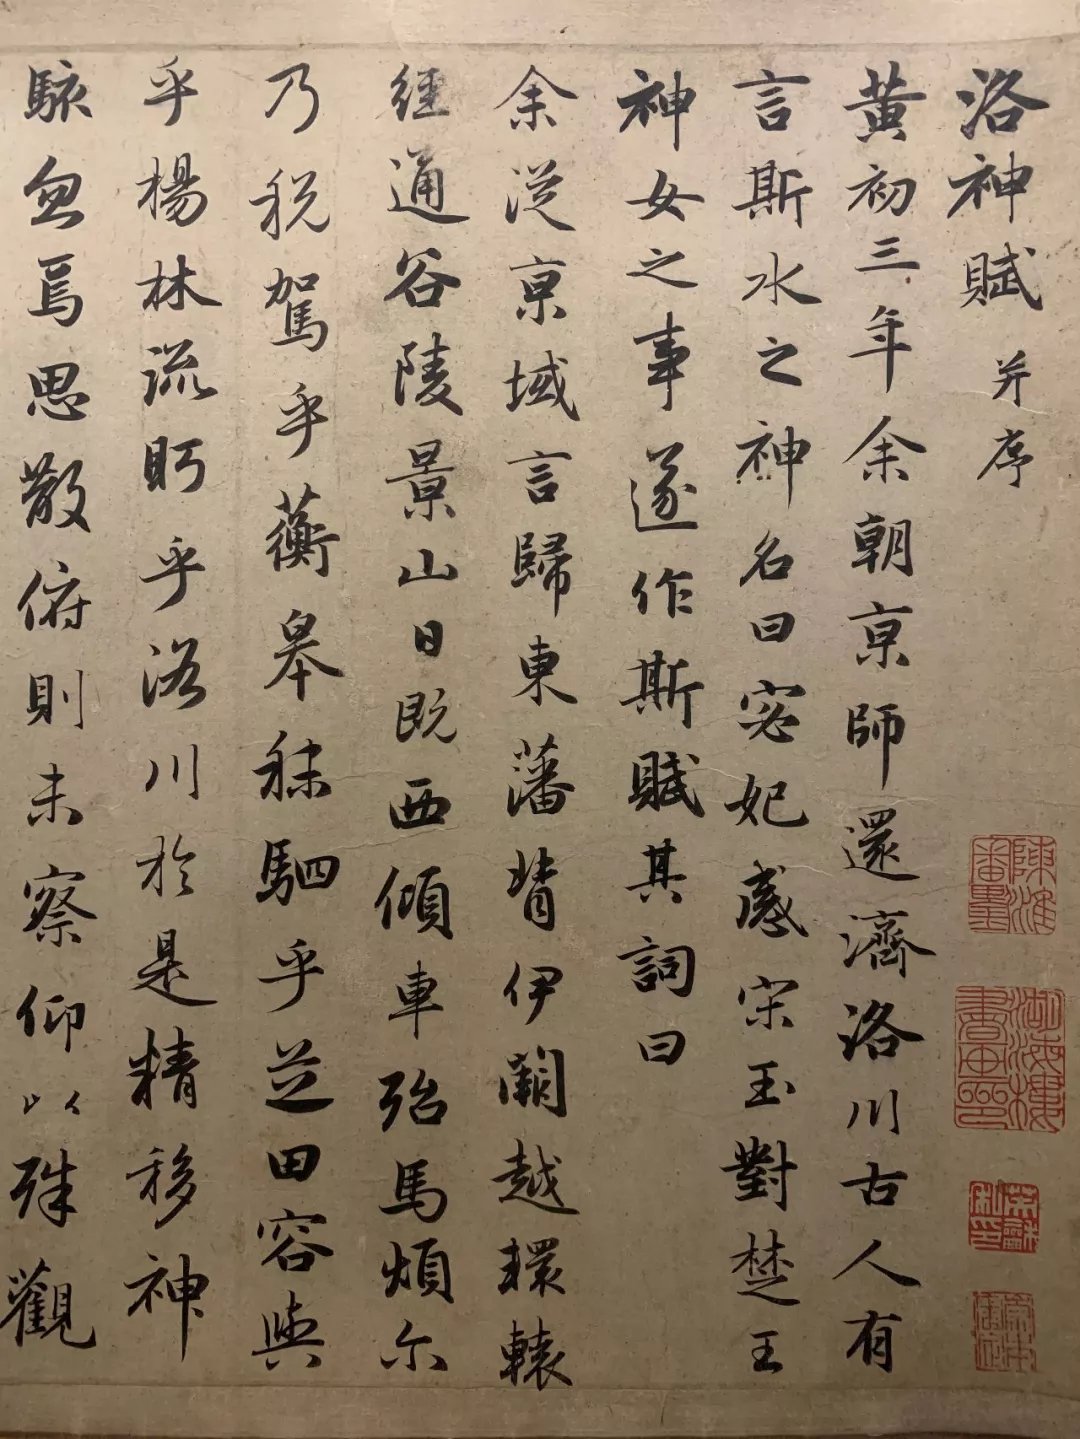 洛神賦 并序
黄初三年余朝京師還濟洛川古人有
言斯水之神名曰宓妃感宋玉對楚王
神女之事遂作斯賦其詞曰
余從京域言歸東藩背伊闕越轘轅
經通谷陵景山日既西傾車殆馬煩尓
乃税駕乎蘅皋秣駟乎芝田容與
乎楊林流眄乎洛川於是精移神
駭忽焉思散俯則未察仰以殊觀